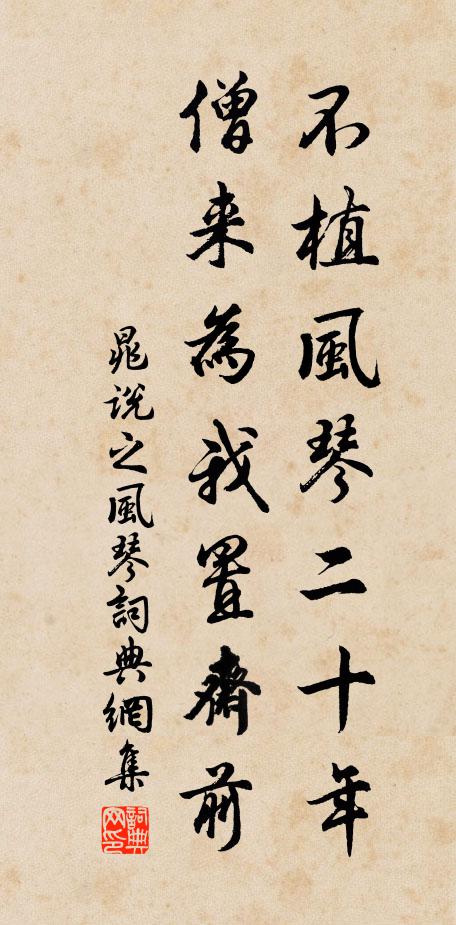 不植風琴二十年
僧来為我置齋前
晁説之風琴詞典網集
詞典网印